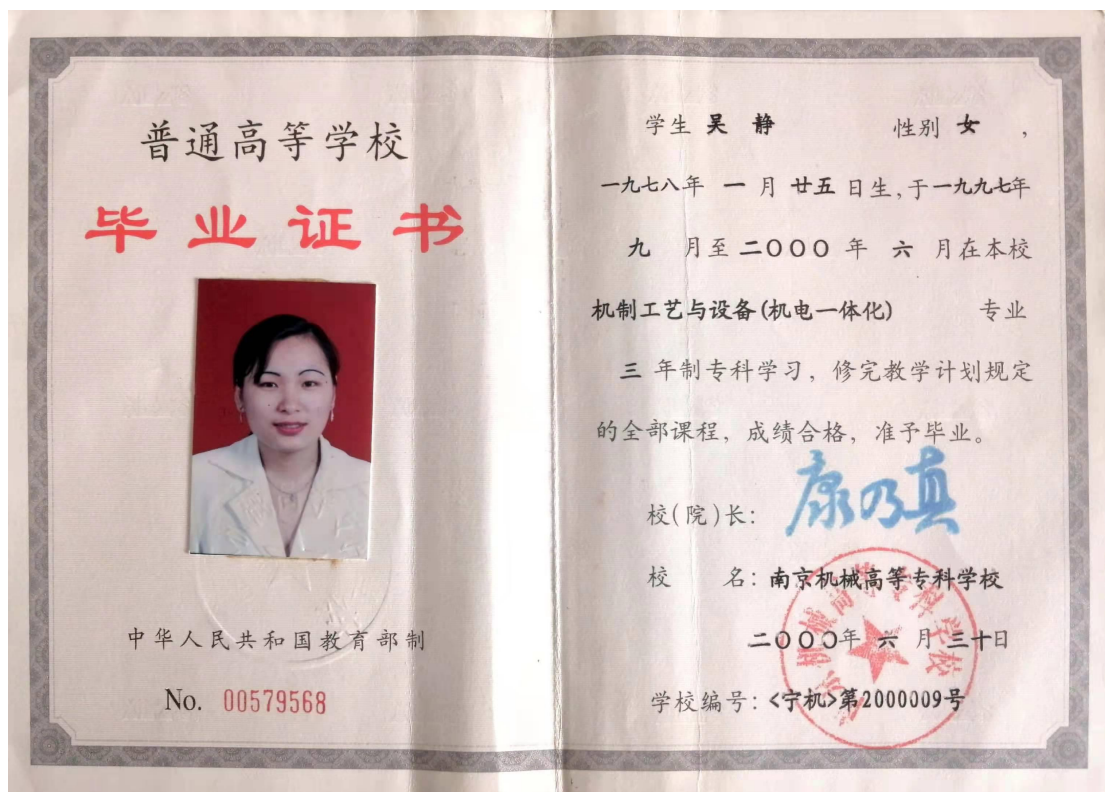 普通高等学校
毕业证书
中华人民共和国教育部制
No. 00579568
学生 吴 静 性别 女 ，
一九七八年 一 月 廿五 日生，于一九九七年
九 月至 二〇〇〇 年 六 月在本校
机制工艺与设备(机电一体化) 专业
三 年制专科学习，修完教学计划规定
的全部课程，成绩合格，准予毕业。
校(院)长： 康乃真
校 名：南京机械高等专科学校
二〇〇〇年 六 月 三十日
学校编号：<宁机>第2000009号
南京机械高等专科学校